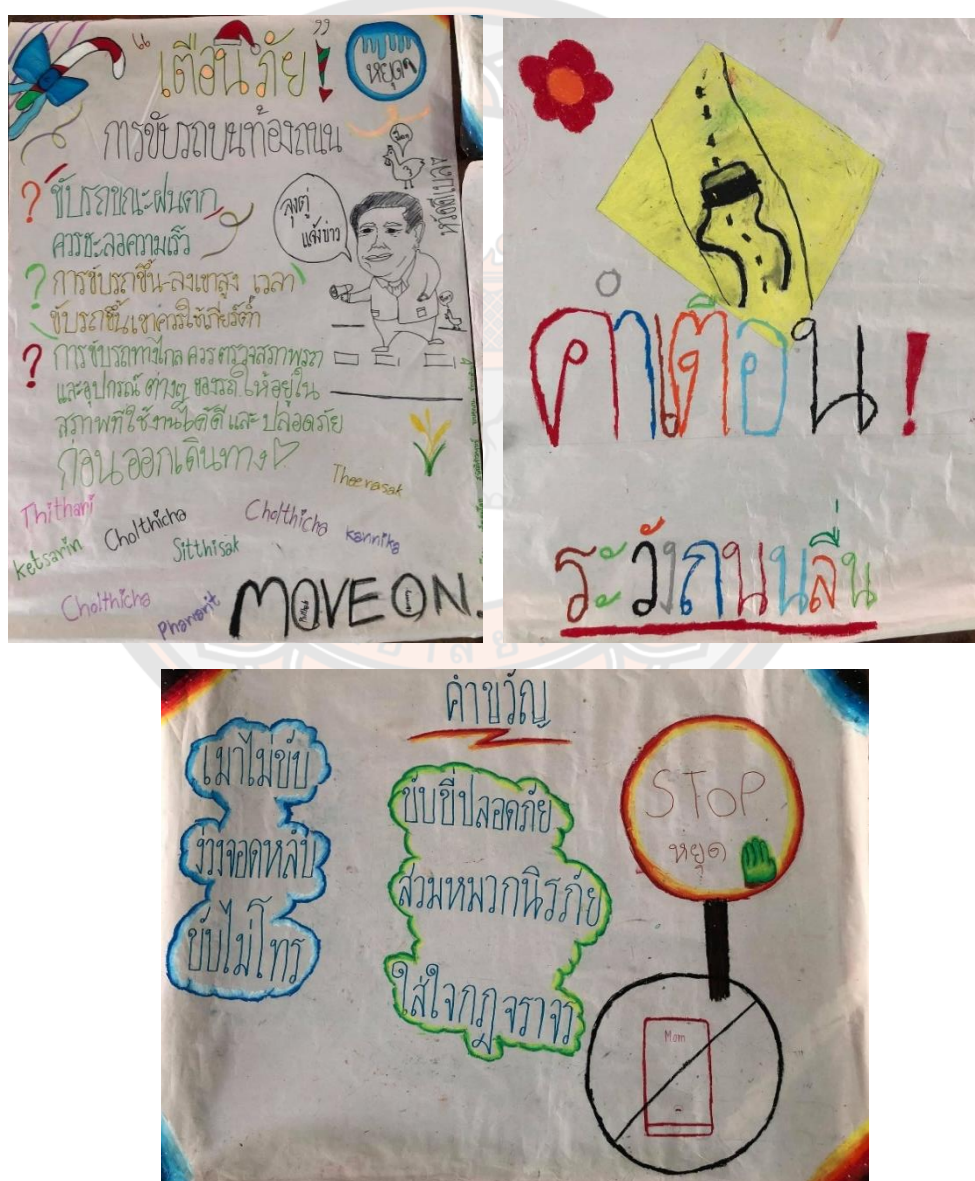 “เตือนภัย!”
หยุดๆ
การขับรถบนท้องถนน
? ขับรถขณะฝนตก
ควรชะลอความเร็ว
? การขับรถขึ้น-ลงเขาสูง เวลา
ขับรถขึ้นเขาควรใช้เกียร์ต่ำ
? การขับรถทางไกล ควรตรวจสภาพรถ
และอุปกรณ์ ต่างๆ ของรถ ให้อยู่ใน
สภาพที่ใช้งานได้ดี และ ปลอดภัย
ก่อนออกเดินทาง
ลุงตู่
แจ้งข่าว
Theerasak
Thithari
Cholthicha
Cholthicha
Kannika
Ketsarin
Sitthisak
Cholthicha
Phanarit
MOVE ON.
คำเตือน!
ระวังถนนลื่น
คำขวัญ
เมาไม่ขับ
ง่วงจอดหลับ
ขับไม่โทร
ขับขี่ปลอดภัย
สวมหมวกนิรภัย
ใส่ใจกฎจราจร
STOP
หยุด
Mom